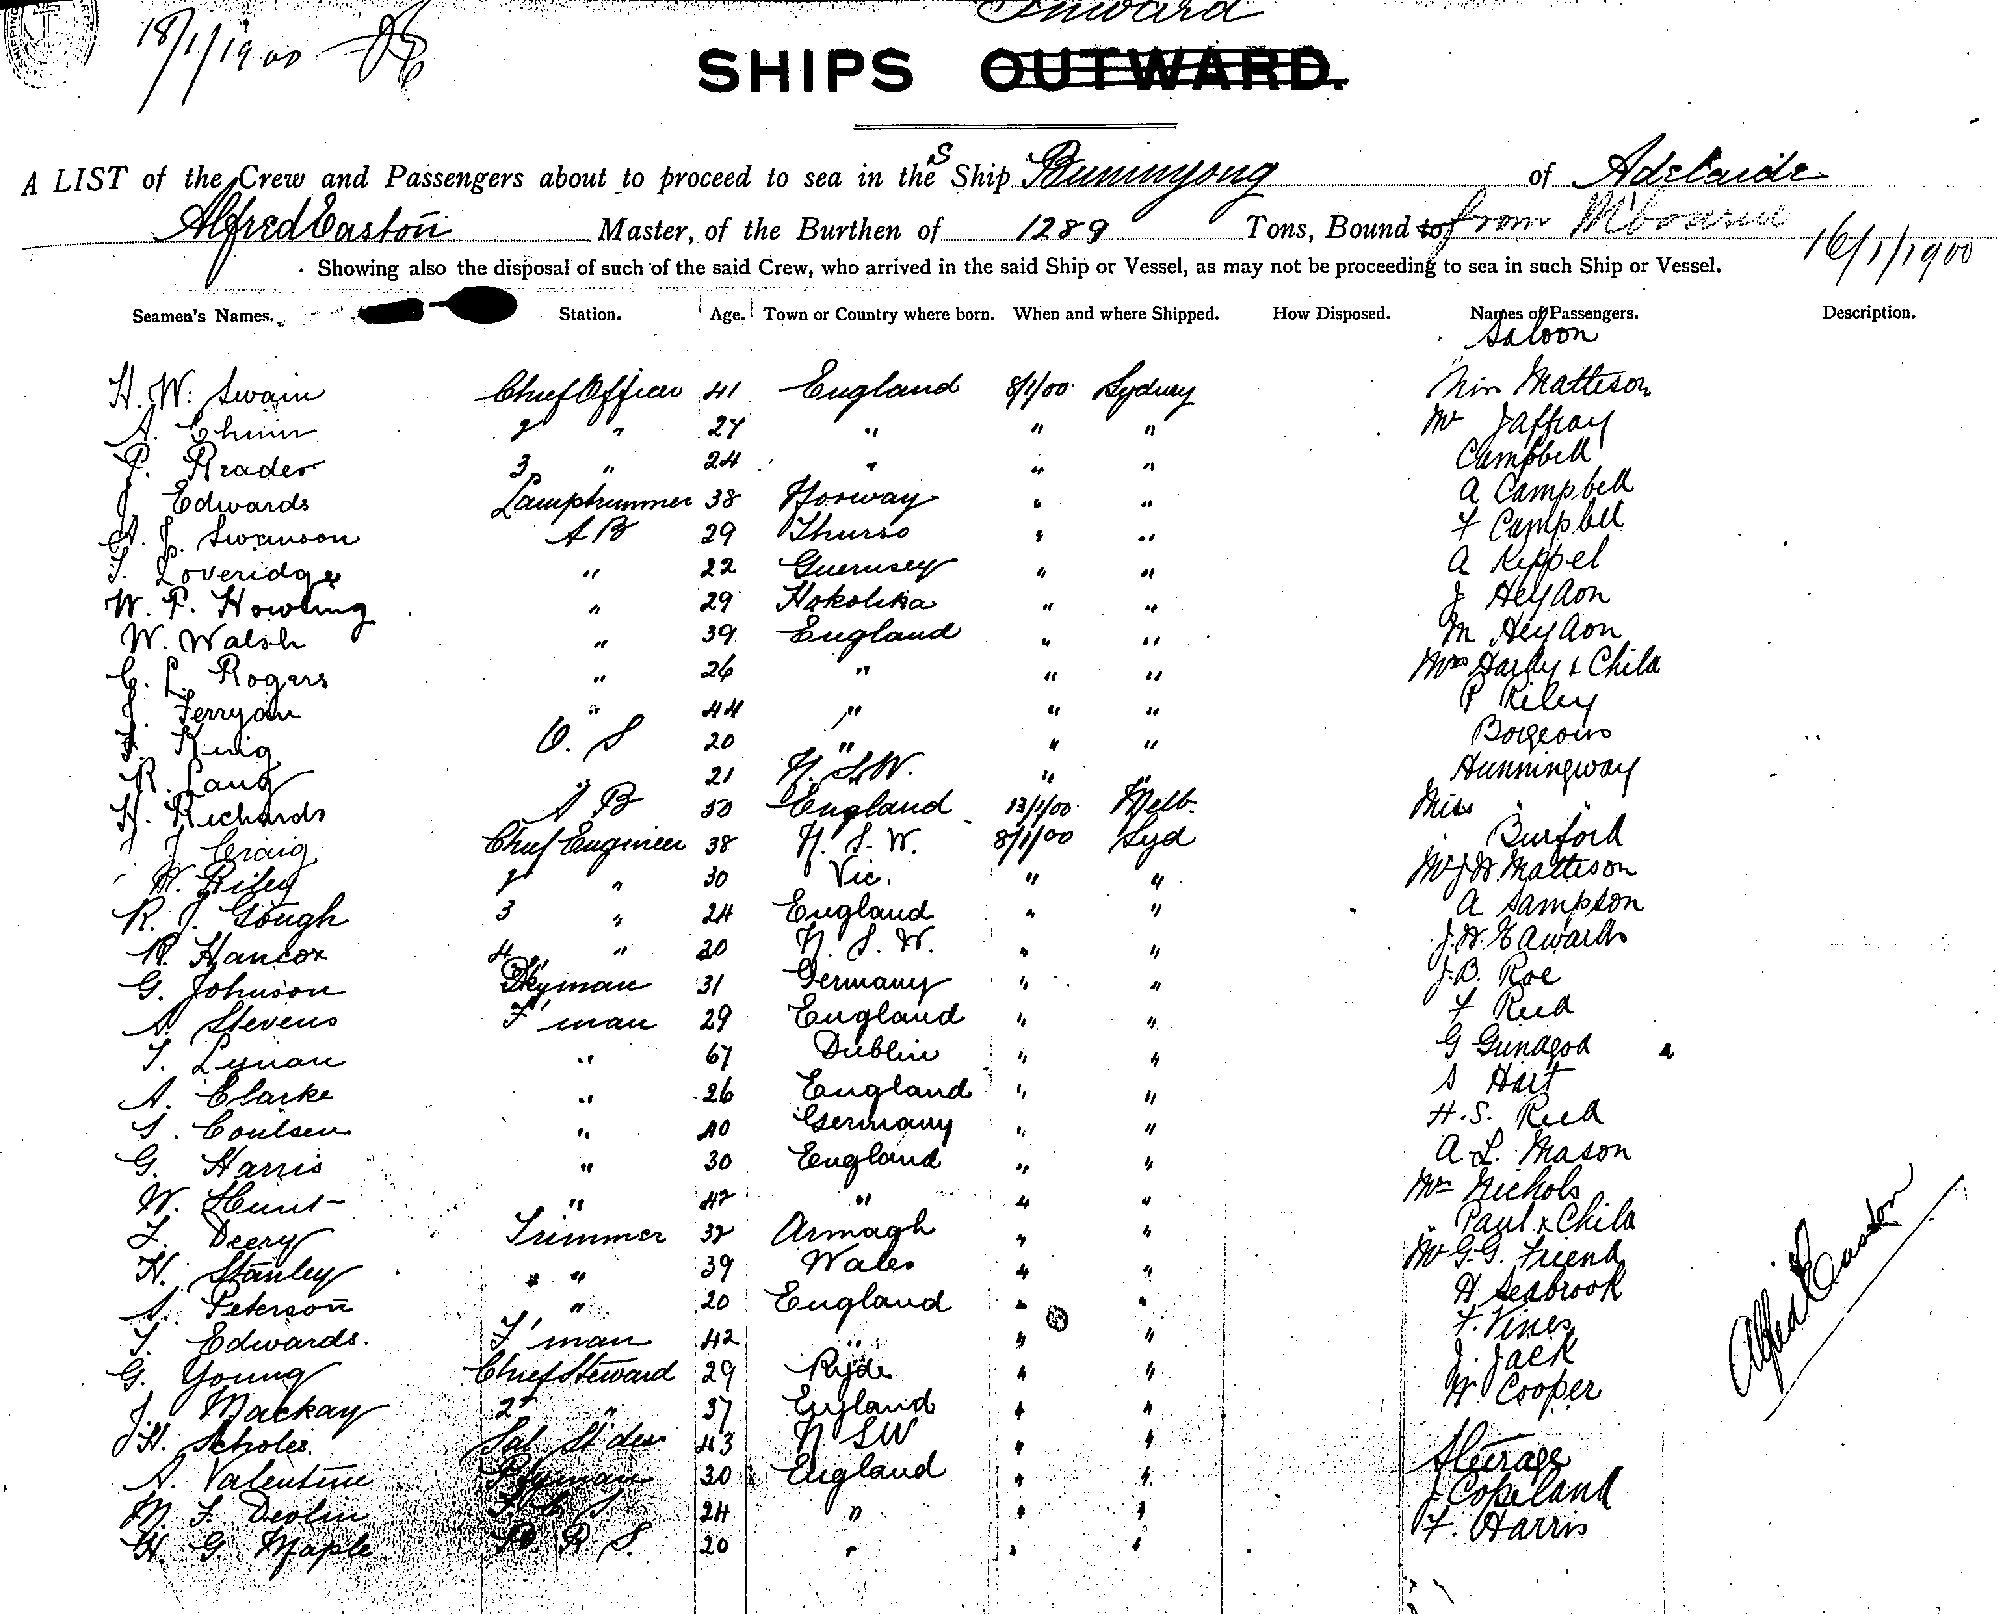 Inward
18/1/1900
SHIPS OUTWARD.
A LIST of the Crew and Passengers about to proceed to sea in the S Ship Buninyong of Adelaide
Alfred Easton Master, of the Burthen of 1289 Tons, Bound to from M'bourne 16/1/1900
Showing also the disposal of such of the said Crew, who arrived in the said Ship or Vessel, as may not be proceeding to sea in such Ship or Vessel.
Seamen's Names. Station. Age. Town or Country where born. When and where Shipped. How Disposed. Names of Passengers. Description.
Saloon
H. W. Swain Chief Officer 41 England 8/1/00 Sydney Miss Matteson
A. 2 " 27 " " " Mr Jaffray
P. Reader 3 " 24 " " " Campbell
J Edwards Lamptrimmer 38 Norway " " A Campbell
A. J. Swanson A B 29 Thurso " " F Campbell
T. Loveridge " 22 Guernsey " " A Keppel
W. P. Howling " 29 Hokotika " " J Heydon
W. Walsh " 39 England " " M Heydon
C. L. Rogers " 26 " " " Mrs Harley & Child
J. Ferryan " 44 " " " P Riley
F. King O. S 20 " " "
R. Lang 21 N. S. W. " " Hunningway
H. Richards A B 50 England 13/1/00 Melb. Miss "
J Craig Chief Engineer 38 N. S. W. 8/1/00 Syd " Burford
W. Riley 2 " 30 Vic. " " Mr J W Matteson
R. J. Gough 3 " 24 England " " A Sampson
R. Hancox 4 " 20 N. S. W. " " J. W. Edwards
G. Johnson D'kyman 31 Germany " " J. B. Roe
A. Stevens F'man 29 England " " F Reed
T. Lynan " 67 Dublin " " G Gunagod
A. Clarke " 26 England " " S Hart
S. Coulsen " 40 Germany " " H. S. Reed
G. Harris " 30 England " " A. L. Mason
W. Hunt " 42 " " " Mrs Nichols
F. Deery Trimmer 32 Armagh " " " Paul & Child
H. Stanley " " 39 Wales " " Mr G. G. Friend
A. Peterson " 20 England " " H Seabrook
T. Edwards. F'man 42 " " " F. Vines
G. Young Chief Steward 29 Ryde " " J. Jack
J. Mackay 2nd " 37 England " " W Cooper
J H. Scholes Sal St'dess 43 N SW " "
Steerage
A. Valentine P'tryman 30 England " " J Copeland
M. F. Devlin F. C. S 24 " " " F. Harris
H. G. Maple R S. 20 " " "
Alfred Easton